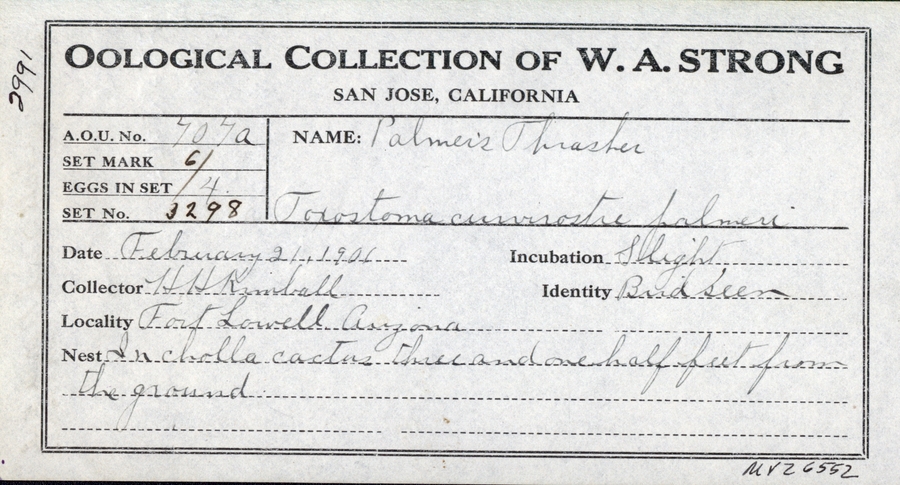 2991
OOLOGICAL COLLECTION OF W. A. STRONG
SAN JOSE, CALIFORNIA
A.O.U. No. 707a
SET MARK 6/
EGGS IN SET /4.
SET No. 3298
NAME: Palmer's Thrasher
Toxostoma curvirostre palmeri
Date February 21, 1906
Incubation Slight
Collector H H Kimball
Identity Bird seen
Locality Fort Lowell Arizona
Nest In cholla cactus three and one half feet from
the ground
MVZ 6552